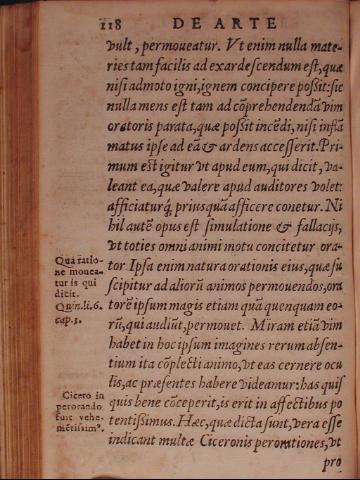 118 DE ARTE
vult, permoueatur. Vt enim nulla mate-
ries tam facilis ad exardescendum est, quæ
nisi admoto igni, ignem concipere possit: sic
nulla mens est tam ad cõprehendendã vim
oratoris parata, quæ possit incẽdi, nisi inflã
matus ipse ad eã & ardens accesserit. Pri-
mum est igitur vt apud eum, qui dicit, va-
leant ea, quæ valere apud auditores volet:
afficiaturq́, priusquã afficere conetur. Ni
hil autẽ opus est simulatione & fallacijs,
vt toties omni animi motu concitetur ora-
tor. Ipsa enim natura orationis eius, quæ su
scipitur ad aliorũ animos permouendos, ora
torẽ ipsum magis etiam quã quenquam eo-
rũ, qui audiũt, permouet. Miram etiã vim
habet in hoc ipsum imagines rerum absen-
tium ita cõplecti animo, vt eas cernere ocu
lis, ac præsentes habere videamur: has quis
quis bene cõceperit, is erit in affectibus po
tentissimus. Hæc, quæ dicta sunt, vera esse
indicant multæ Ciceronis perorationes, vt
pro
Qua ratio-
ne mouea-
tur is qui
dicit.
Quin. li. 6.
cap. 3.
Cicero in
perorando
fuit vehe-
mẽtissim⁹.